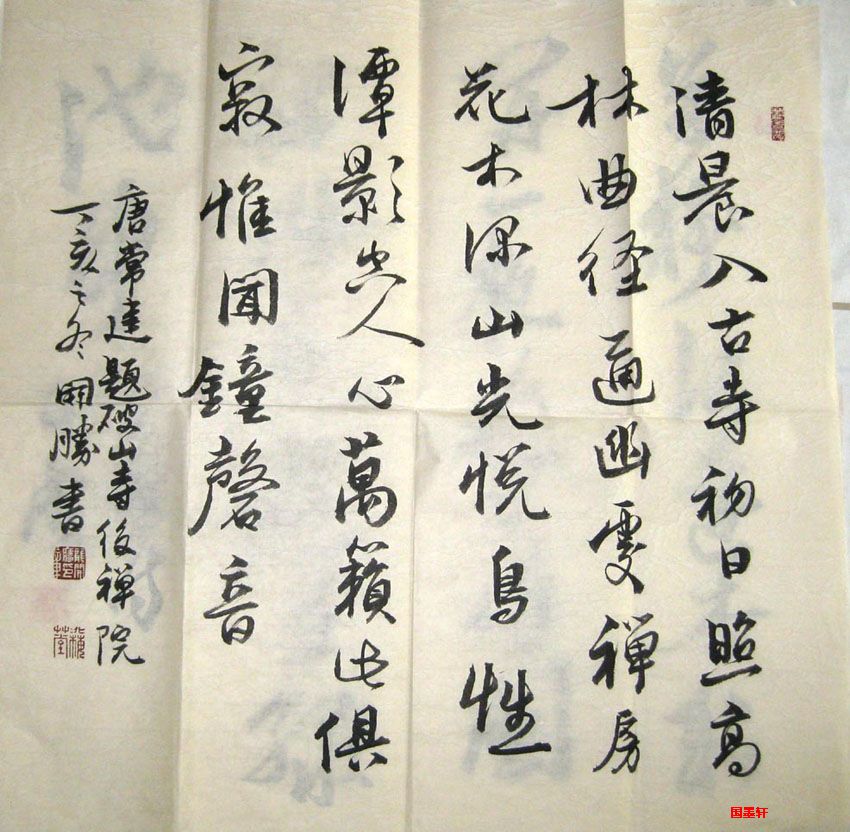 清晨入古寺初日照高
林曲径通幽處禪房
花木深山光悦鳥性
潭影空人心萬籟此俱
寂惟聞鐘磬音
唐常建題破山寺後禪院
丁亥之冬開勝書
国墨轩